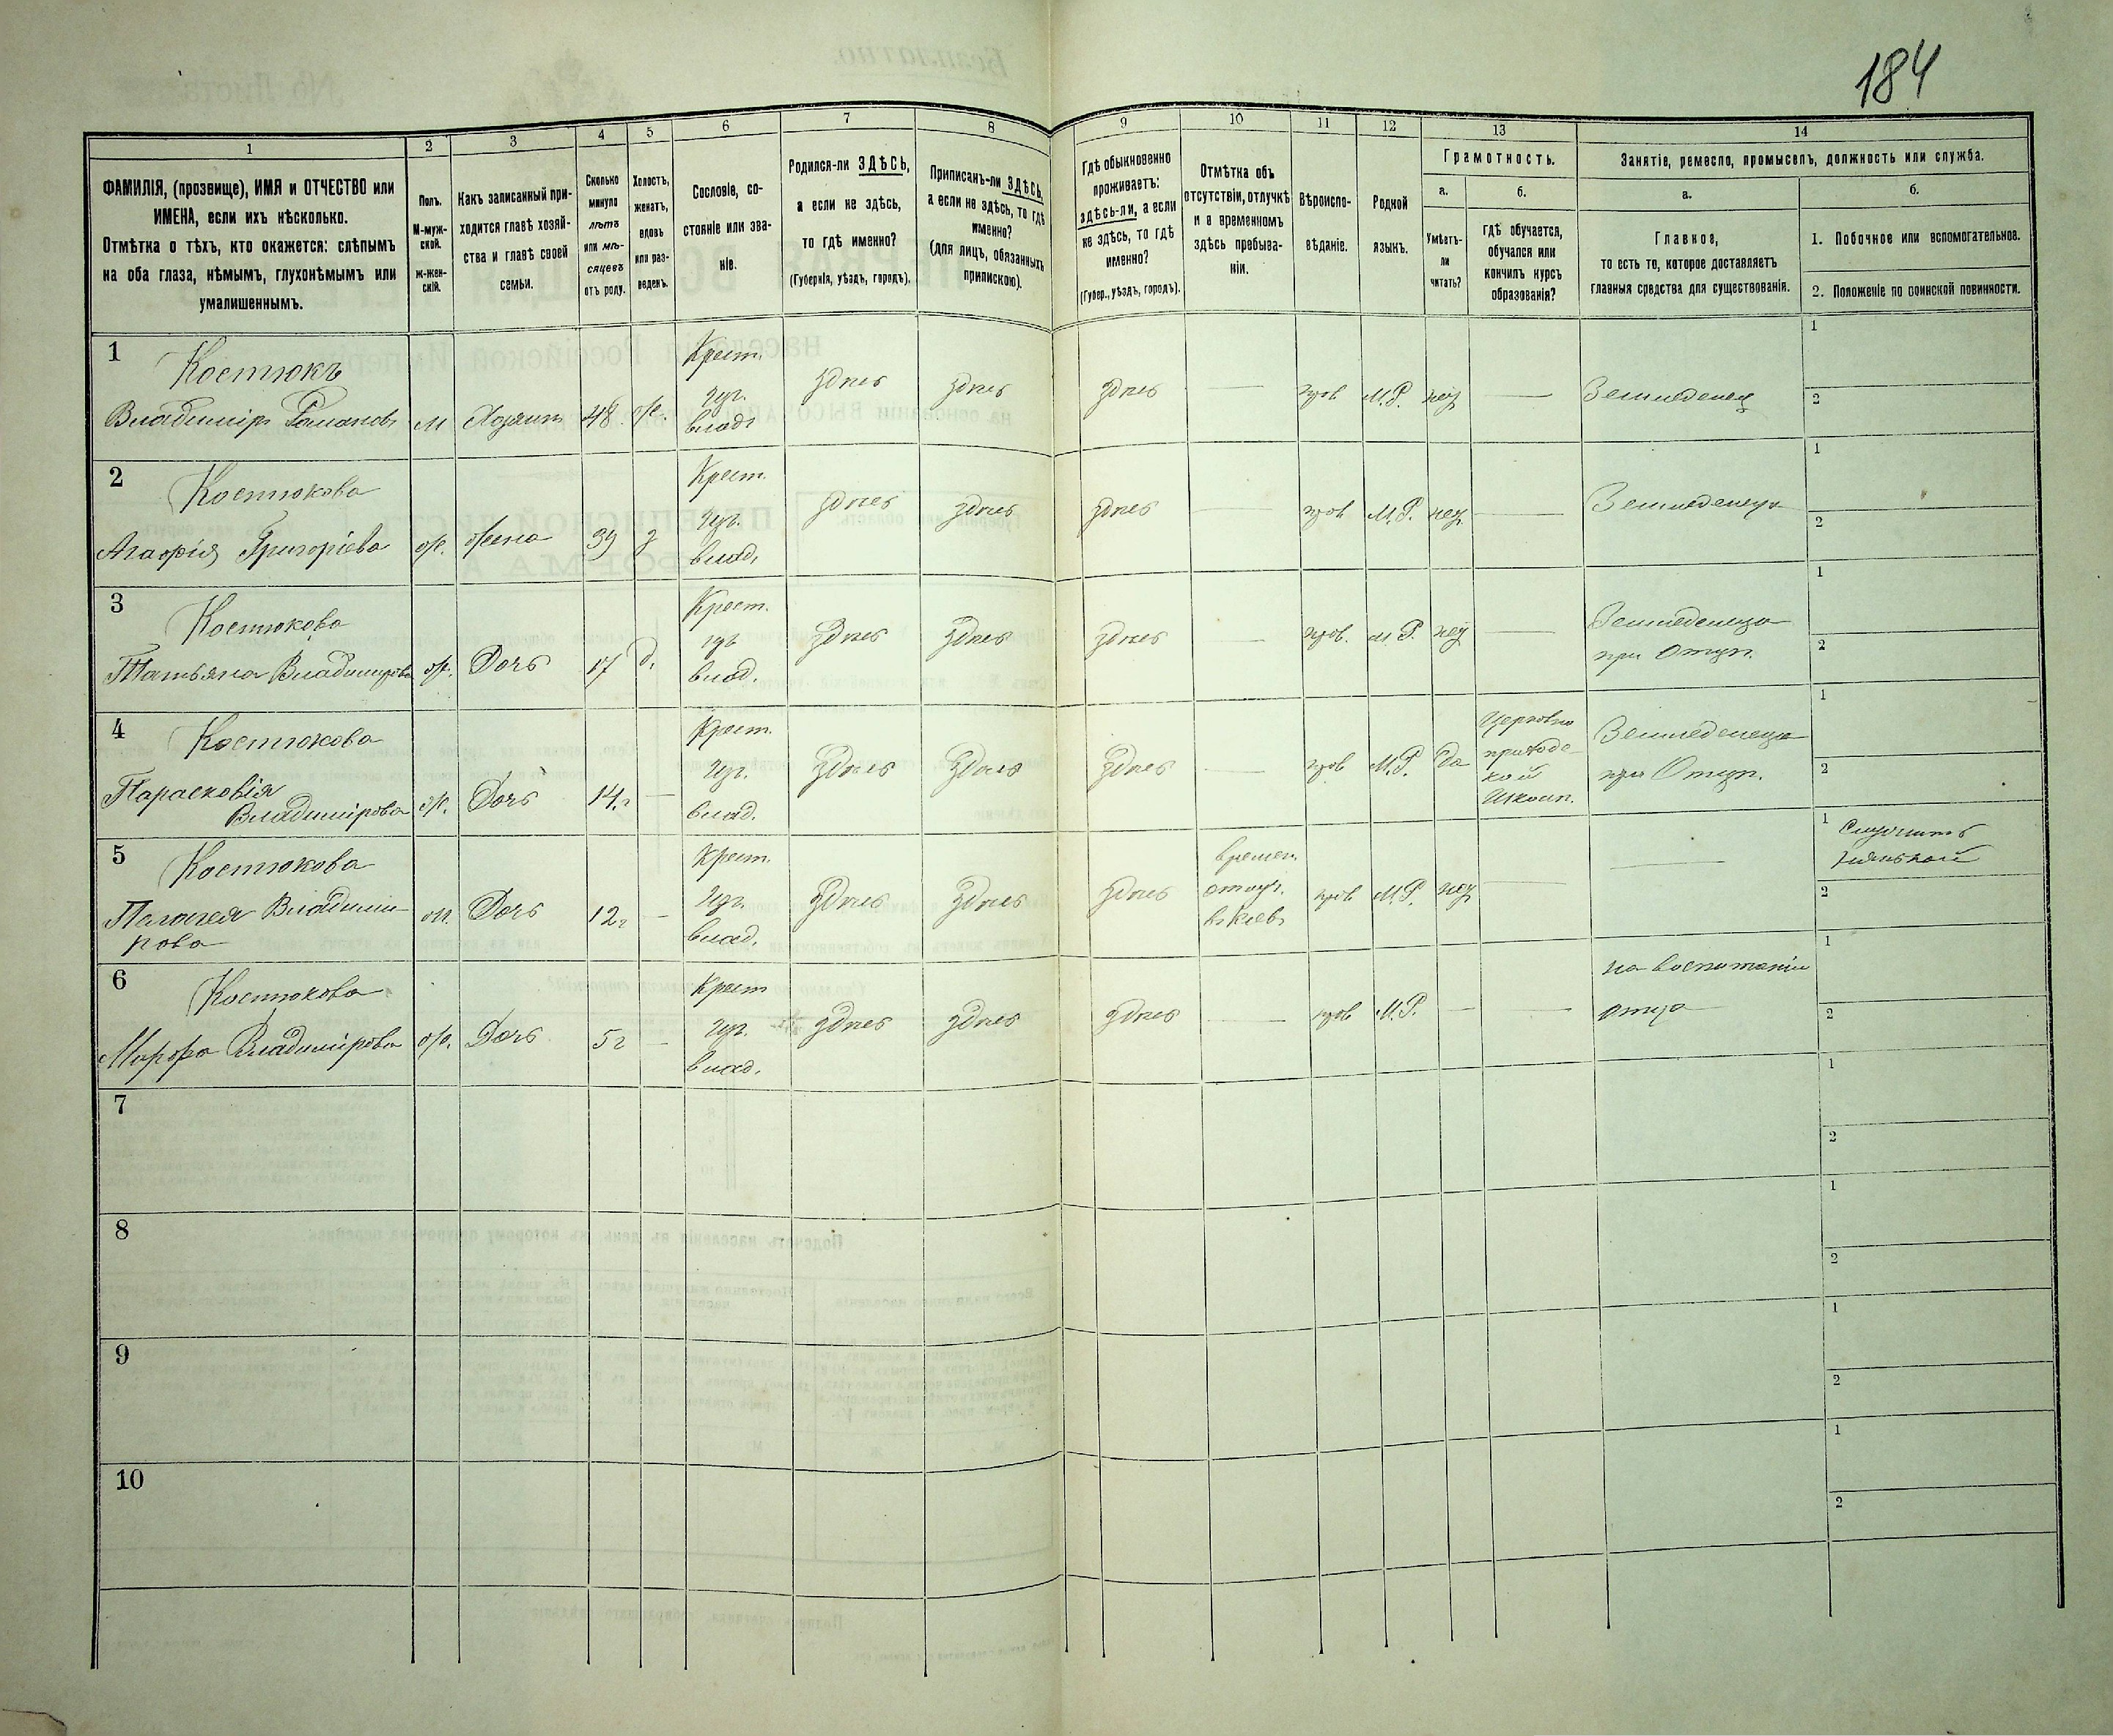 184
1 2 3 4 5 6 7 8 9 10 11 12 13 14
ФАМИЛІЯ, (прозвище), ИМЯ и ОТЧЕСТВО или
ИМЕНА, если ихъ нѣсколько.
Отмѣтка о тѣхъ, кто окажется: слѣпымъ
на оба глаза, нѣмымъ, глухонѣмымъ или
умалишеннымъ.
Полъ.
М-муж-
ской.
Ж-жен-
скій.
Какъ записанный при-
ходится главѣ хозяй-
ства и главѣ своей
семьи.
Сколько
минуло
лѣтъ
или мѣ-
сяцевъ
отъ роду.
Холостъ,
женатъ,
вдовъ
или раз-
веденъ.
Сословіе, со-
стояніе или зва-
ніе.
Родился-ли ЗДѢСЬ,
а если не здѣсь,
то гдѣ именно?
(Губернія, уѣздъ, городъ).
Приписанъ-ли ЗДѢСЬ,
а если не здѣсь, то гдѣ
именно?
(Для лицъ, обязанныхъ
припискою).
Гдѣ обыкновенно
проживаетъ:
здѣсь-ли, а если
не здѣсь, то гдѣ
именно?
(Губер., уѣздъ, городъ).
Отмѣтка объ
отсутствіи, отлучкѣ
и о временномъ
здѣсь пребыва-
ніи.
Вѣроиспо-
вѣданіе.
Родной
языкъ.
Грамотность.
а.
Умѣетъ-
ли
читать?
б.
гдѣ обучается,
обучался или
кончилъ курсъ
образованія?
Занятіе, ремесло, промыселъ, должность или служба.
а.
Главное,
то есть то, которое доставляетъ
главныя средства для существованія.
б.
1. Побочное или вспомогательное.
2. Положеніе по воинской повинности.
1
Костюкъ
Владиміръ Романовъ
м
Хозяинъ
48
ж.
Крест.
изъ
влад.
здѣсь
здѣсь
здѣсь
—
прав
М.Р.
нѣт
—
Земледѣлец
1
2
2
Костюкова
Агафія Григоріева
ж.
жена
39
з
Крест.
изъ.
влад.
здѣсь
здѣсь
здѣсь
—
прав
М.Р.
нѣт
—
Земледѣлица
1
2
3
Костюкова
Татьяна Владимірова
ж.
Дочь
17
д.
Крест.
изъ
влад.
здѣсь
здѣсь
здѣсь
—
прав.
М.Р.
нѣт
—
Земледѣлица
при Отцѣ.
1
2
4
Костюкова
Парасковія
Владимірова
ж.
Дочь
14 г
—
Крест.
изъ.
влад.
здѣсь
здѣсь
здѣсь
—
прав
М.Р.
да
Церковно
приходс
кой
школѣ.
Земледѣлица
при Отцѣ.
1
2
5
Костюкова
Палагея Владими-
рова
ж.
Дочь
12 г
—
Крест.
изъ.
влад.
здѣсь
здѣсь
здѣсь
времен.
отлуч.
въ Кіевъ
прав
М.Р.
нѣт
—
—
1
Служитъ
нянькой
2
6
Костюкова
Марфа Владимірова
ж.
Дочь
5 г
—
Крест
изъ.
влад.
здѣсь
здѣсь
здѣсь
—
прав
М.Р.
—
—
на воспитаніи
отца
1
2
7
1
2
8
1
2
9
1
2
10
1
2